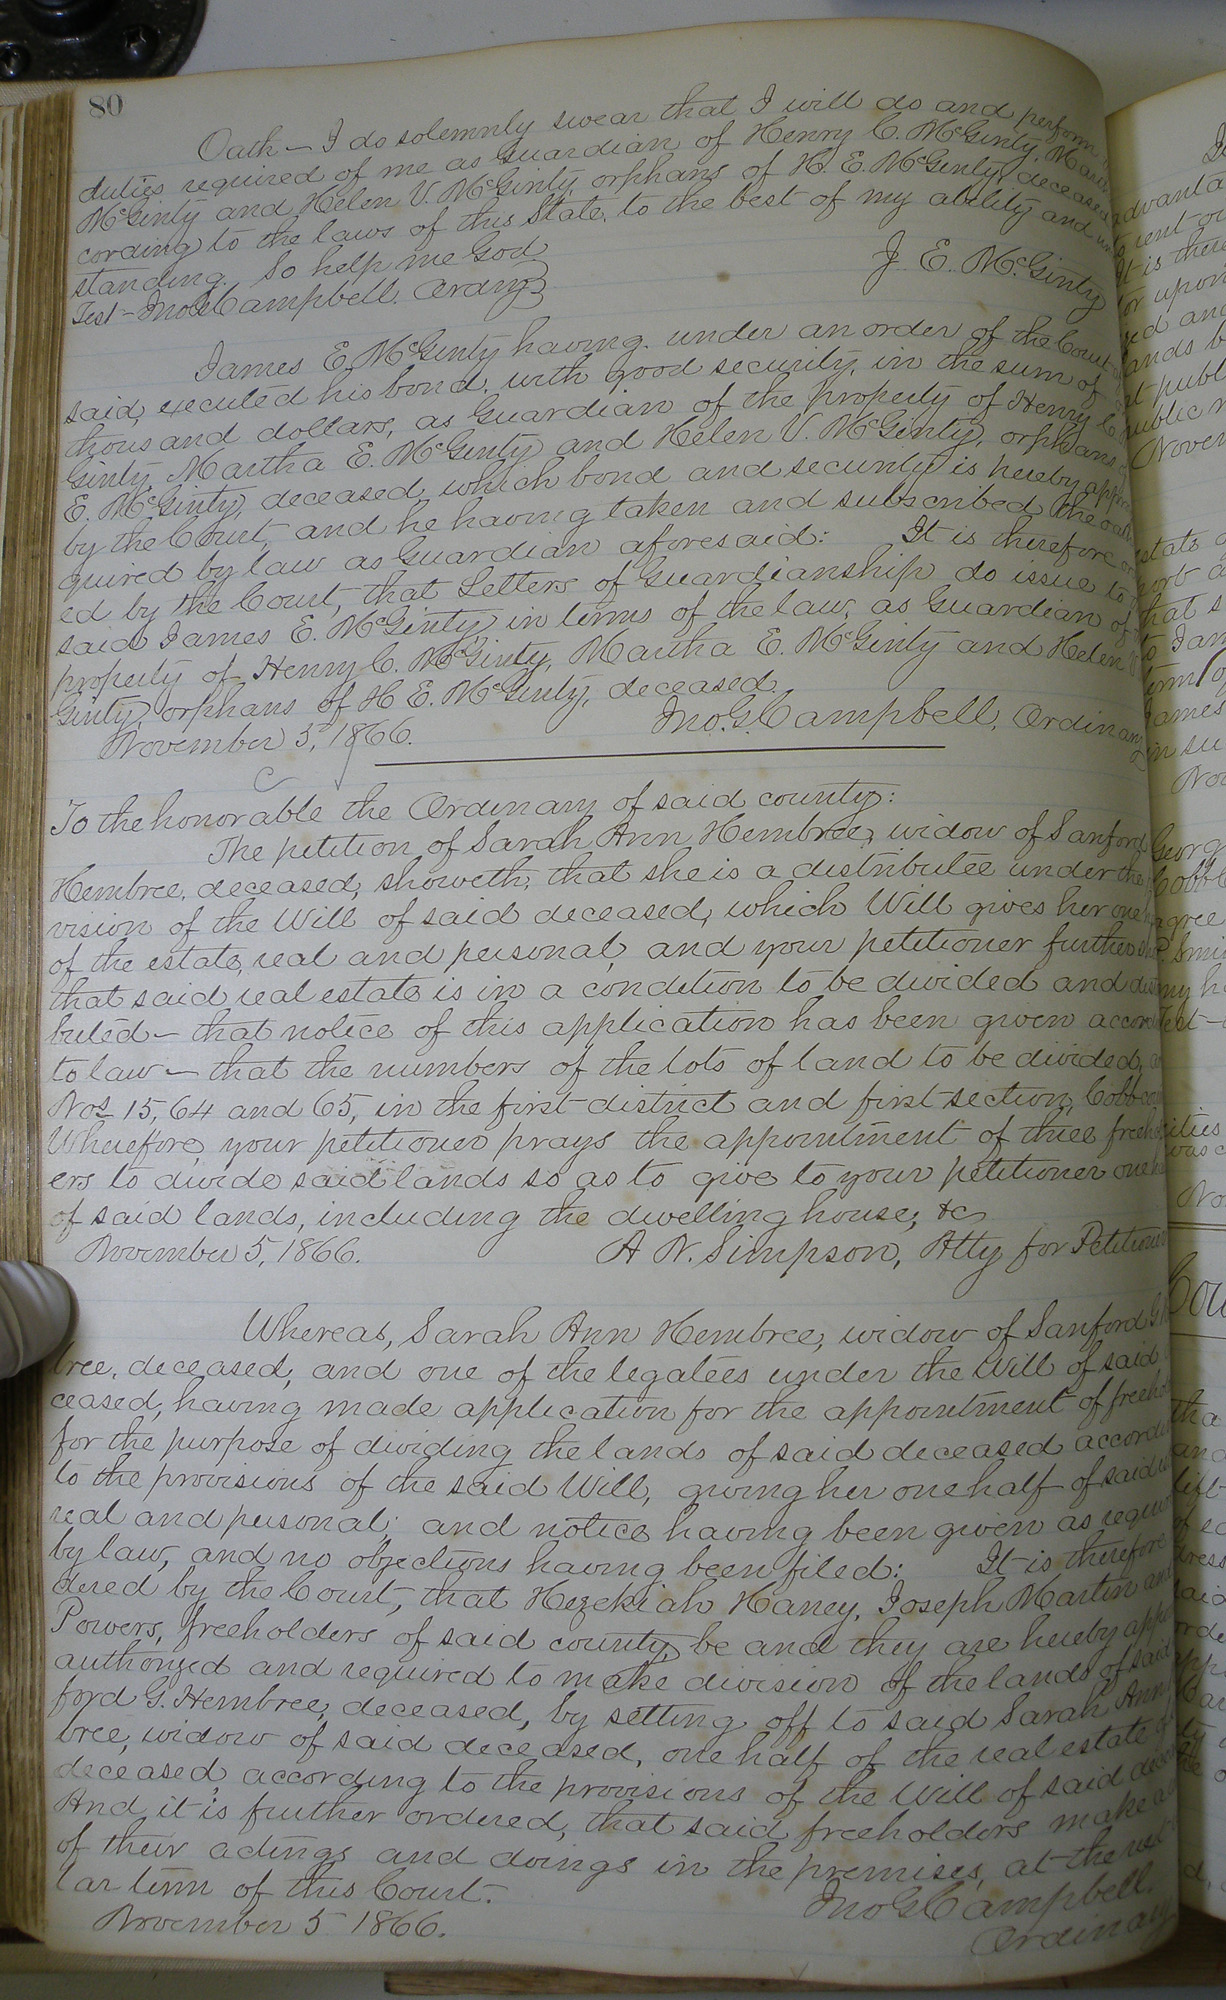 80
Oath — I do solemnly swear that I will do and perform
duties required of me as Guardian of Henry C. McGinty, Martha
McGinty and Helen V. McGinty, orphans of H. E. McGinty, deceased
cording to the laws of this State, to the best of my ability and un
standing. So help me God
Test – Jno. G. Campbell. Ordny } J. E. McGinty
James E. McGinty having, under an order of the Court
said, executed his bond, with good security, in the sum of
thousand dollars, as Guardian of the property of Henry C.
Ginty, Martha E. McGinty and Helen V. McGinty, orphans
E. McGinty, deceased, which bond and security is hereby appro
by the Court, and he having taken and subscribed the oath
quired by law as Guardian aforesaid: It is therefore or
ed by the Court, that Letters of Guardianship do issue to
said James E. McGinty, in terms of the law, as Guardian of
property of Henry C. McGinty, Martha E. McGinty and Helen V
Ginty, orphans of H E. McGinty, deceased.
November 5, 1866. Jno. G. Campbell, Ordinary
To the honorable the Ordinary of said county:
The petition of Sarah Ann Hembree, widow of Sanford
Hembree, deceased, showeth, that she is a distributee under the
vision of the Will of said deceased, which Will gives her one
of the estate, real and personal, and your petitioner further
that said real estate is in a condition to be divided and dis
buted — that notice of this application has been given accord
to law — that the numbers of the lots of land to be divided,
Nos 15, 64 and 65, in the first district and first section, Cobb
Wherefore, your petitioner prays the appointment of three freehol
ers to divide said lands so as to give to your petitioner one
of said lands, including the dwelling house, &c
November 5, 1866. A N. Simpson, Atty for Petitioner
Whereas, Sarah Ann Hembree, widow of Sanford G
bree, deceased, and one of the legatees under the Will of said
ceased, having made application for the appointment of freehol
for the purpose of dividing the lands of said deceased accordin
to the provisions of the said Will, giving her one half of said
real and personal; and notice having been given as requir
by law, and no objections having been filed: It is therefore
dered by the Court, that Hezekiah Haney, Joseph Martin and
Powers, freeholders of said county, be and they are hereby appo
authorized and required to make division of the lands of said
ford G. Hembree, deceased, by setting off to said Sarah Ann
bree, widow of said deceased, one half of the real estate of
deceased according to the provisions of the Will of said dece
And it is further ordered, that said freeholders make a
of their actings and doings in the premises, at the
lar term of this Court.
November 5 1866. Jno. G. Campbell.
Ordinary